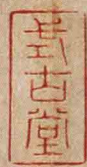 式古堂